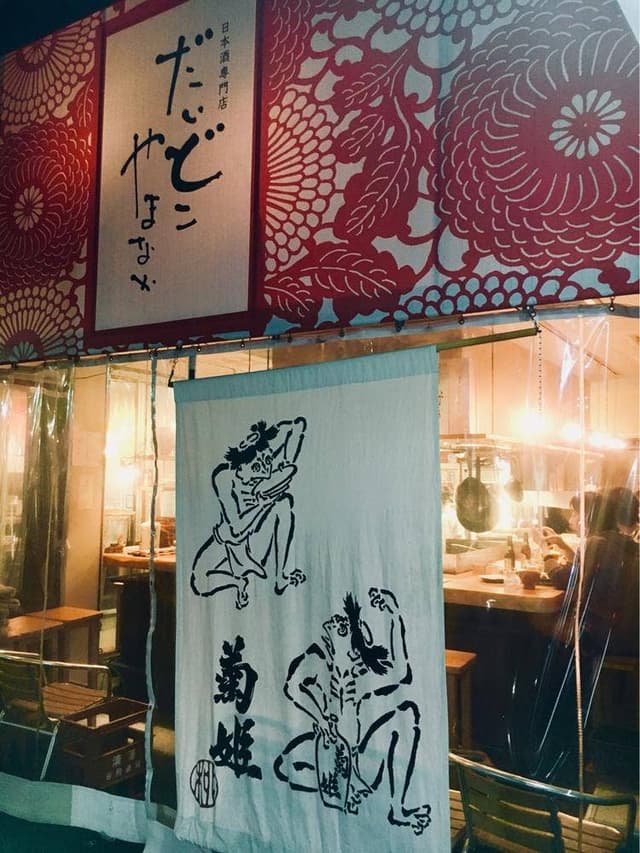 日本酒専門店
だいどこ
やまなか
菊姫
菊姫